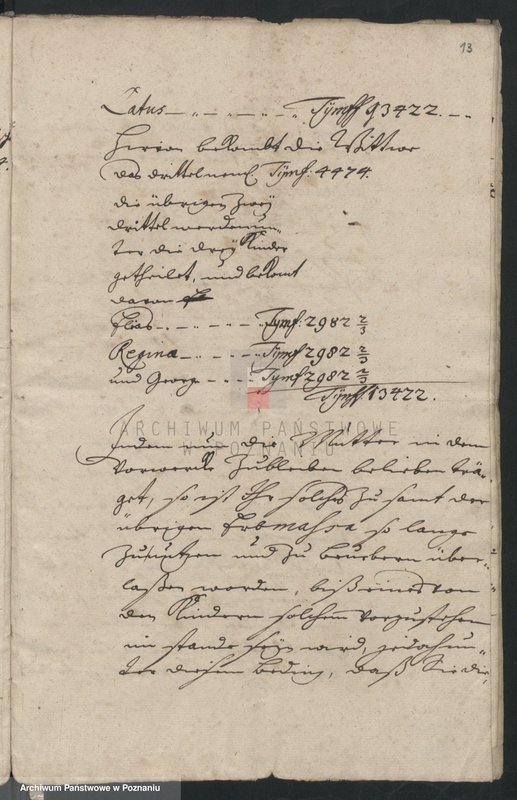 13
Latus — „ — „ — „ — „ Tÿmff 13422. —
Hievon bekombt die Wittwe
das drittel neml. Tÿmf: 4474.
die übrigen zweÿ
drittel werden un-
ter die dreÿ Kinder
getheilet, und bekomt
davon
Elias — „ — „ — „ Tÿmf: 2982 2/3
Regina — „ — „ — „ Tÿmf 2982 2/3
und George — „ — „ Tÿmf 2982 2/3
Tÿmff 13422.
Indem nun die Mutter in dem
Vorwerke zubleiben belieben trä-
get, so ist Ihr solches zu samt der
übrigen Erbmassa so lange
zu nutzen und zu über-
laßen worden, biß eines von
den Kindern solchem vorzustehen
im stande seÿn wird, jedoch un-
ter diesem beding, daß Sie die
ARCHIWUM PAŃSTWOWE
W POZNANIU
Archiwum Państwowe w Poznaniu